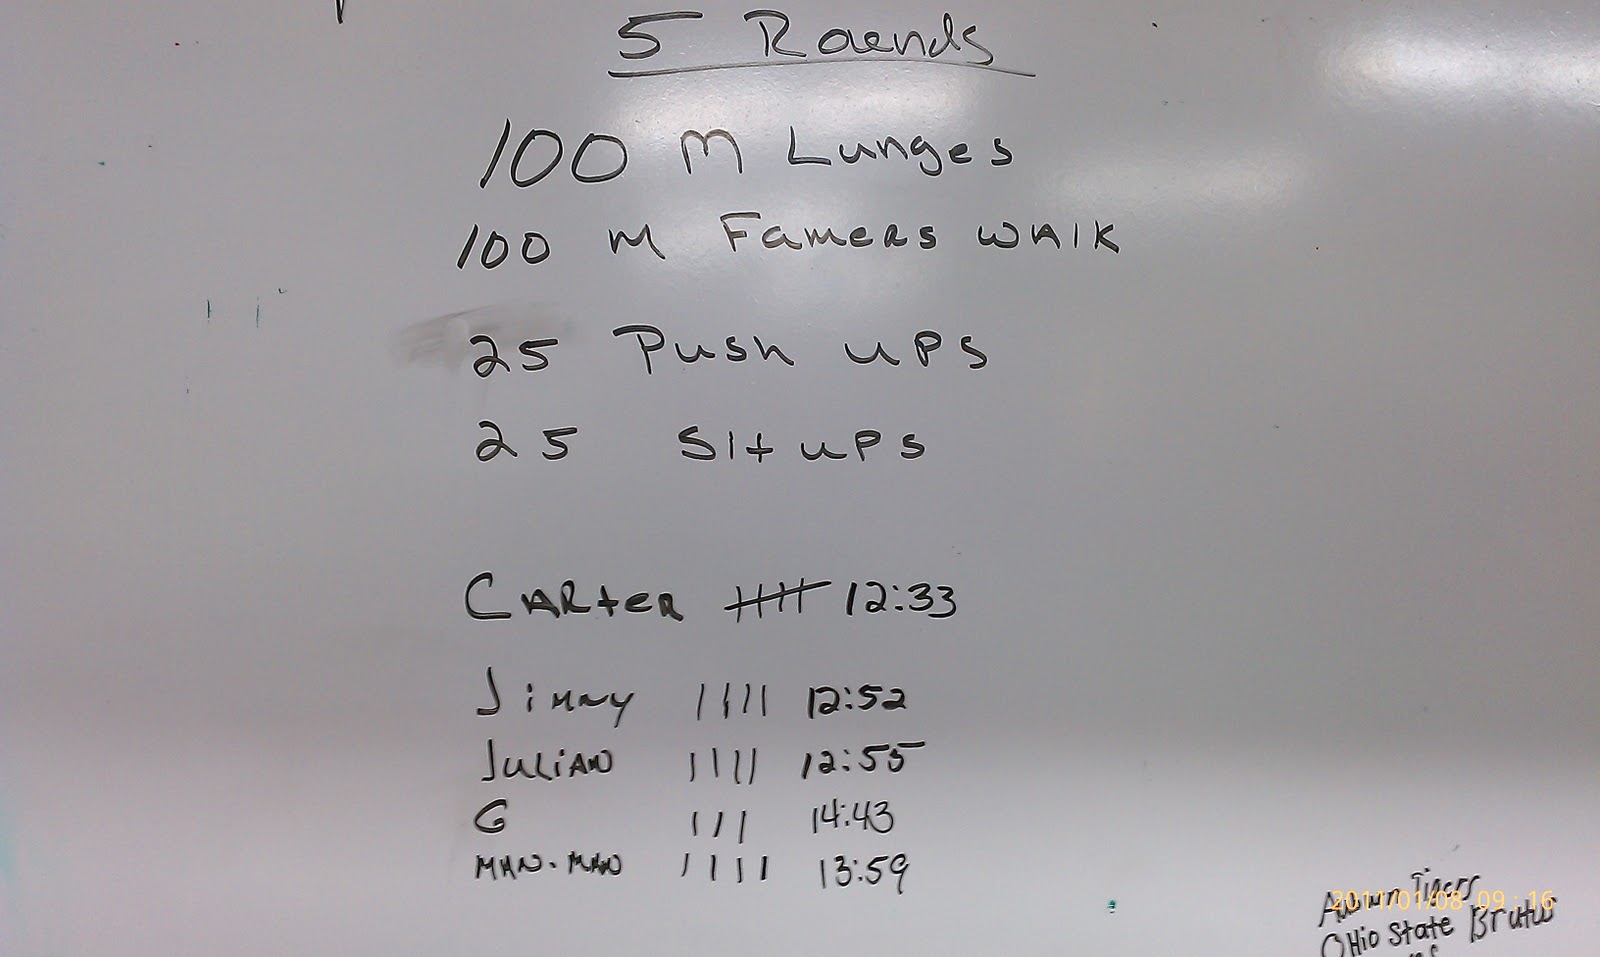 5 Rounds
100 M Lunges
100 M Famers WAlk
25 Push ups
25 Sit ups
CARteR 12:33
Jimmy |||| 12:52
JuLiAN |||| 12:55
G ||| 14:43
MAN-MAN |||| 13:59
Auburn Tigers
2011/01/08 09:16
OHio State Brutus